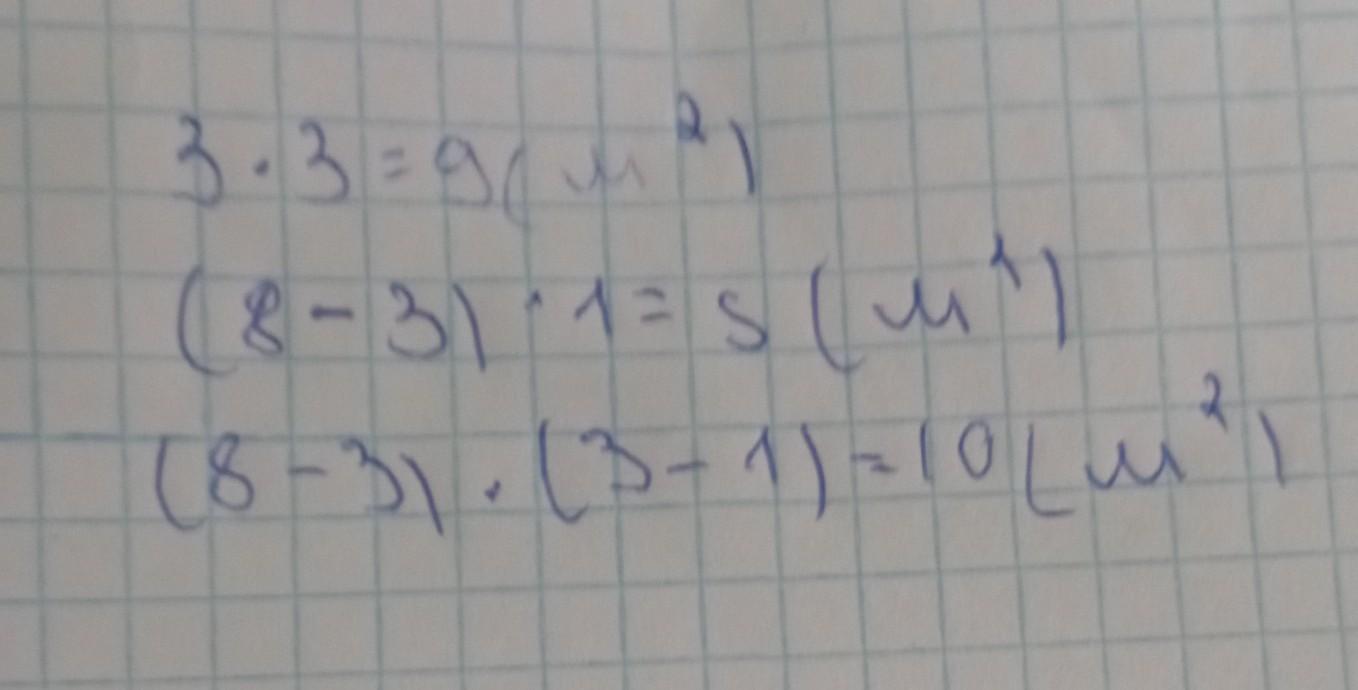 3 · 3 = 9 ( м² )
( 8 - 3 ) · 1 = 5 ( м² )
( 8 - 3 ) · ( 3 - 1 ) = 10 ( м² )